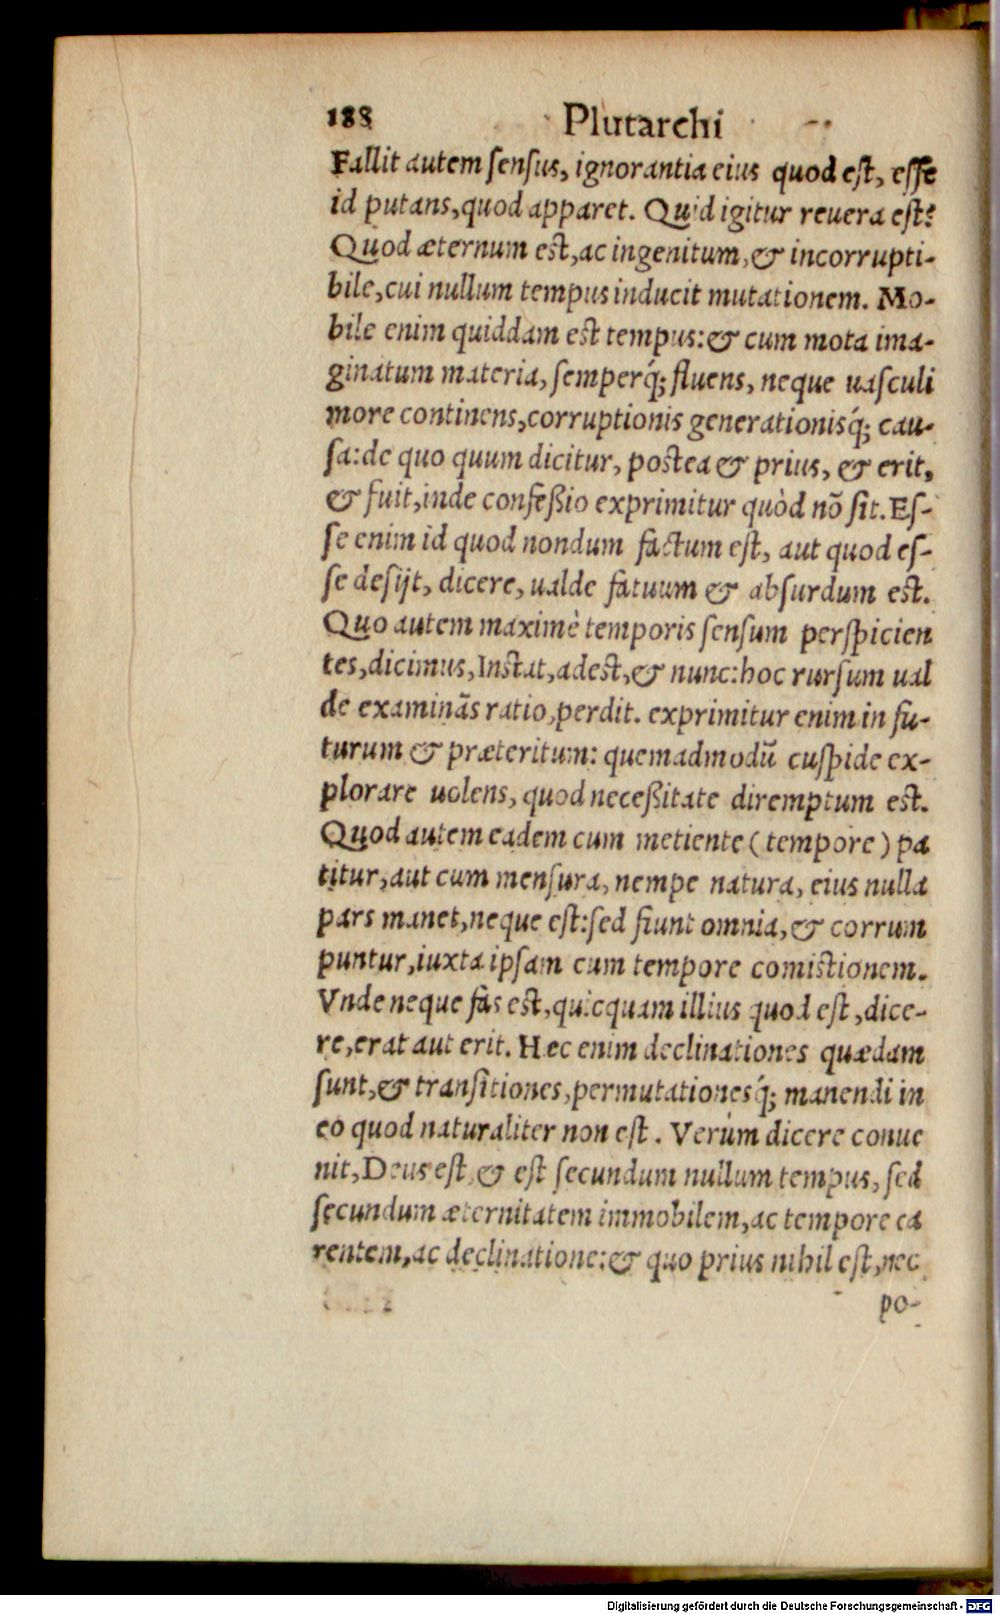 188 Plutarchi
Fallit autem ſenſus, ignorantia eius quod eſt, eſſe
id putans, quod apparet. Quid igitur reuera eſt?
Quod æternum eſt, ac ingenitum, & incorrupti-
bile, cui nullum tempus inducit mutationem. Mo-
bile enim quiddam eſt tempus: & cum mota ima-
ginatum materia, ſemperq́; fluens, neque uaſculi
more continens, corruptionis generationisq́; cau-
ſa: de quo quum dicitur, postea & prius, & erit,
& fuit, inde confeßio exprimitur quòd nõ ſit. Eſ-
ſe enim id quod nondum factum eſt, aut quod eſ-
ſe deſijt, dicere, ualde fatuum & abſurdum eſt.
Quo autem maximè temporis ſenſum perſpicien
tes, dicimus, Instat, adest, & nunc: hoc rurſum ual
de examinãs ratio, perdit. exprimitur enim in fu-
turum & præteritum: quemadmodũ cuſpide ex-
plorare uolens, quod neceßitate diremptum eſt.
Quod autem eadem cum metiente (tempore) pa
titur, aut cum menſura, nempe natura, eius nulla
pars manet, neque eſt: ſed fiunt omnia, & corrum
puntur, iuxta ipſam cum tempore comistionem.
Vnde neque fas eſt, quicquam illius quod eſt, dice-
re, erat aut erit. Hæc enim declinationes quædam
ſunt, & tranſitiones, permutationesq́; manendi in
eo quod naturaliter non eſt. Verùm dicere conue
nit, Deus eſt, & eſt ſecundum nullum tempus, ſed
ſecundum æternitatem immobilem, ac tempore ca
rentem, ac declinatione: & quo prius nihil eſt, nec
po-
Digitalisierung gefördert durch die Deutsche Forschungsgemeinschaft - DFG